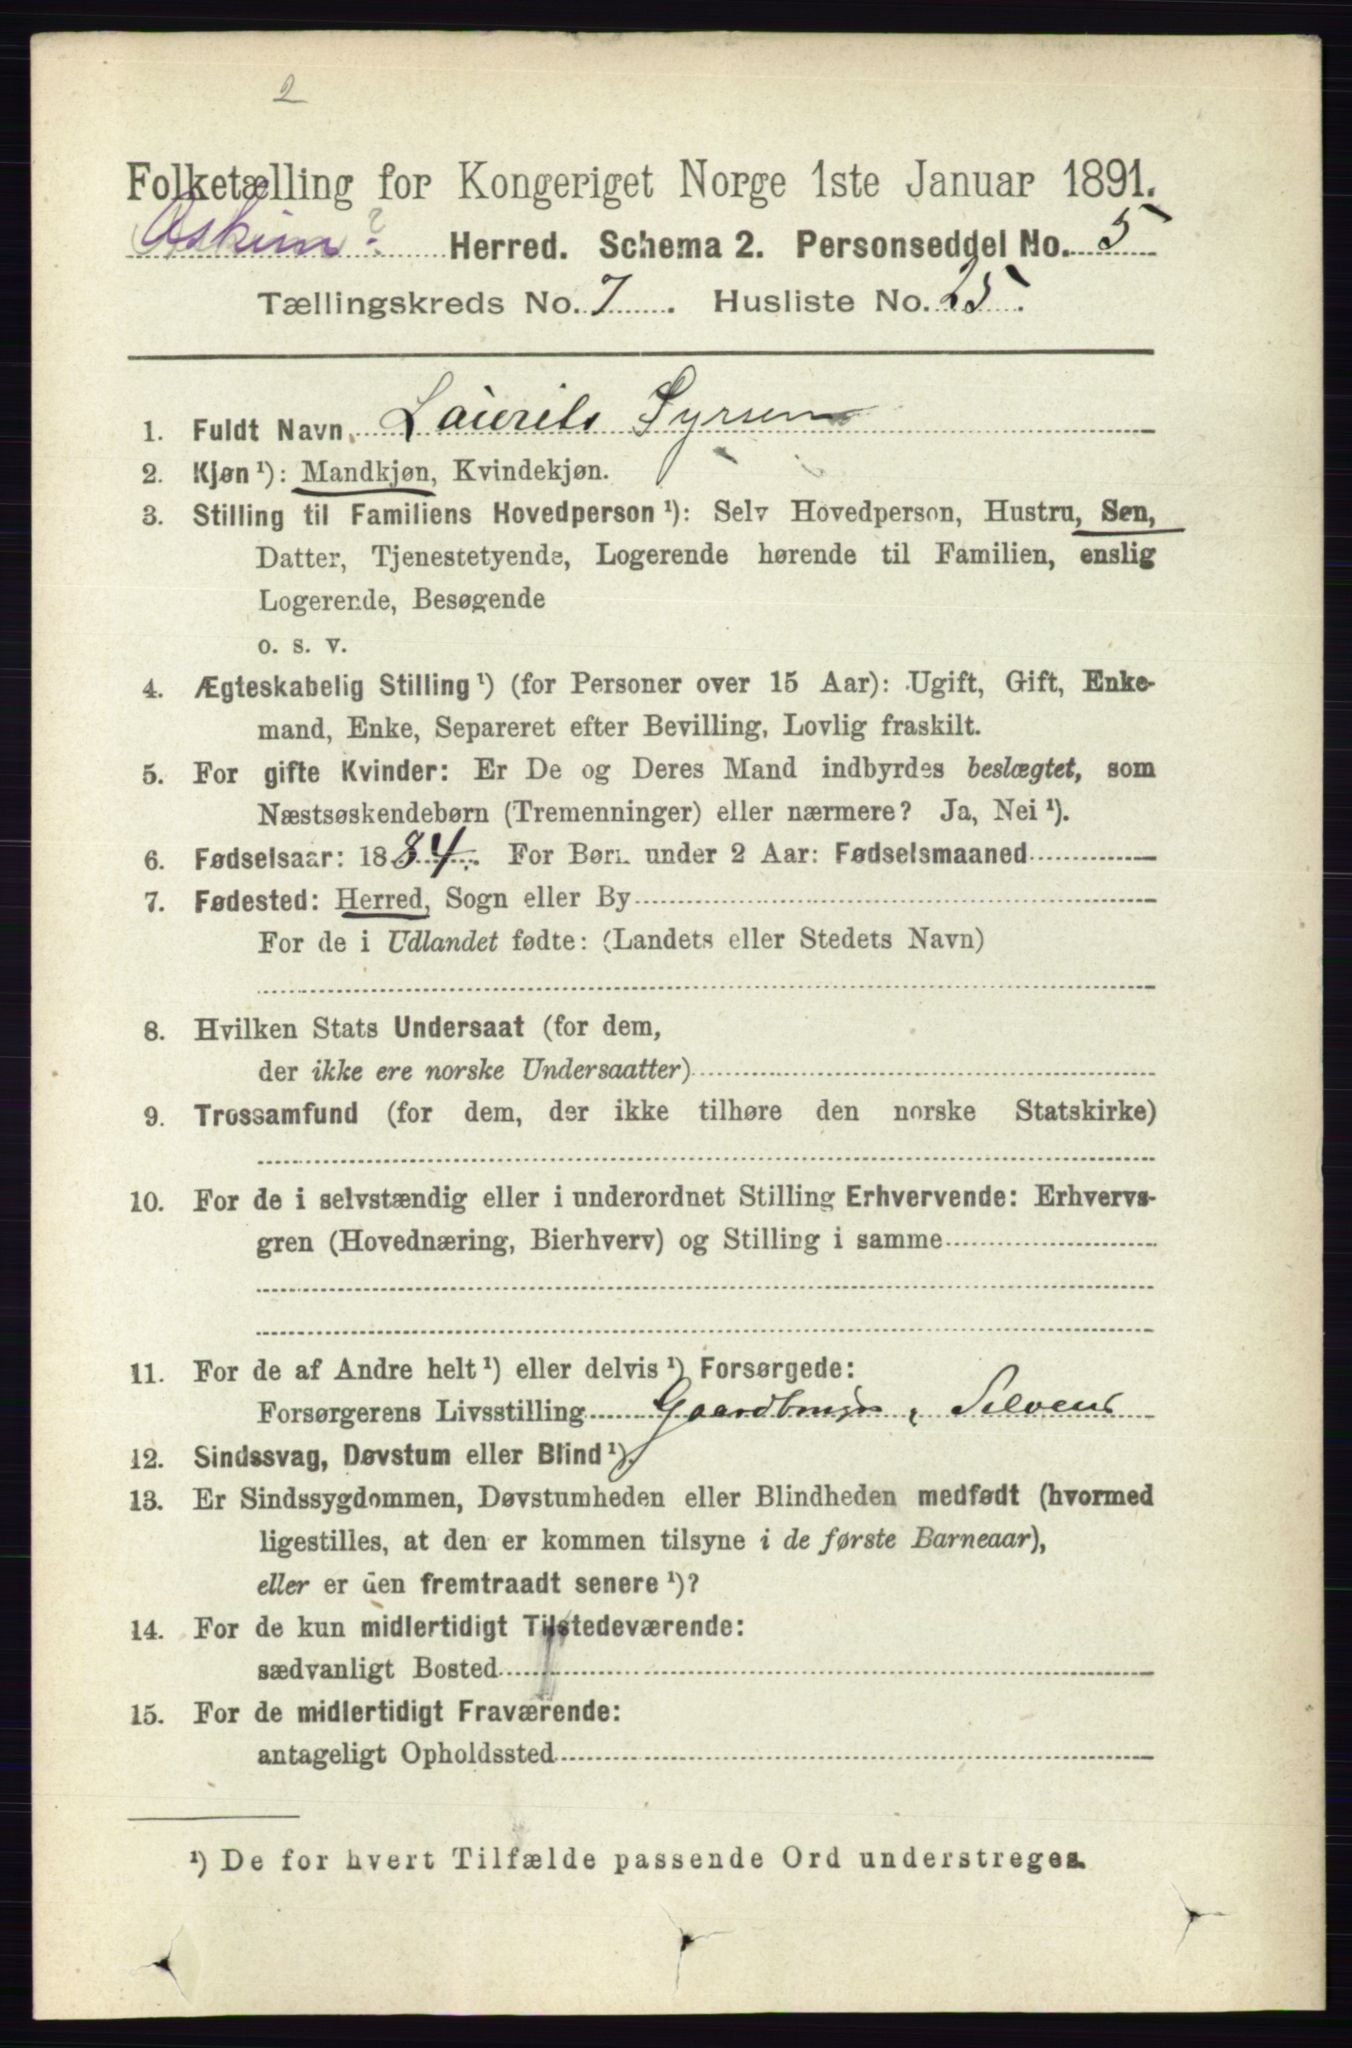 2
Folketælling for Kongeriget Norge 1ste Januar 1891.
Askim ? Herred. Schema 2. Personseddel No. 5
Tællingskreds No. 7. Husliste No. 25.
1. Fuldt Navn, Laurits Syrsen
2. Kjøn ¹): Mandkjøn, Kvindekjøn.
3. Stilling til Familiens Hovedperson ¹): Selv Hovedperson, Hustru, Søn,
Datter, Tjenestetyende, Logerende hørende til Familien, enslig
Logerende, Besøgende
o. s. v.
4. Ægteskabelig Stilling ¹) (for Personer over 15 Aar): Ugift, Gift, Enke-
mand, Enke, Separeret efter Bevilling, Lovlig fraskilt.
5. For gifte Kvinder: Er De og Deres Mand indbyrdes beslægtet, som
Næstsøskendebørn (Tremenninger) eller nærmere? Ja, Nei ¹).
6. Fødselsaar: 1884. For Børn under 2 Aar: Fødselsmaaned
7. Fødested: Herred, Sogn eller By
For de i Udlandet fødte: (Landets eller Stedets Navn)
8. Hvilken Stats Undersaat (for dem,
der ikke ere norske Undersaatter)
9. Trossamfund (for dem, der ikke tilhøre den norske Statskirke)
10. For de i selvstændig eller i underordnet Stilling Erhvervende: Erhvervs-
gren (Hovednæring, Bierhverv) og Stilling i samme
11. For de af Andre helt ¹) eller delvis ¹) Forsørgede:
Forsørgerens Livsstilling Gaardbruger, Selveier
12. Sindssvag, Døvstum eller Blind ¹).
13. Er Sindssygdommen, Døvstumheden eller Blindheden medfødt (hvormed
ligestilles, at den er kommen tilsyne i de første Barneaar),
eller er den fremtraadt senere ¹)?
14. For de kun midlertidigt Tilstedeværende:
sædvanligt Bosted
15. For de midlertidigt Fraværende:
antageligt Opholdssted
¹) De for hvert Tilfælde passende Ord understreges.